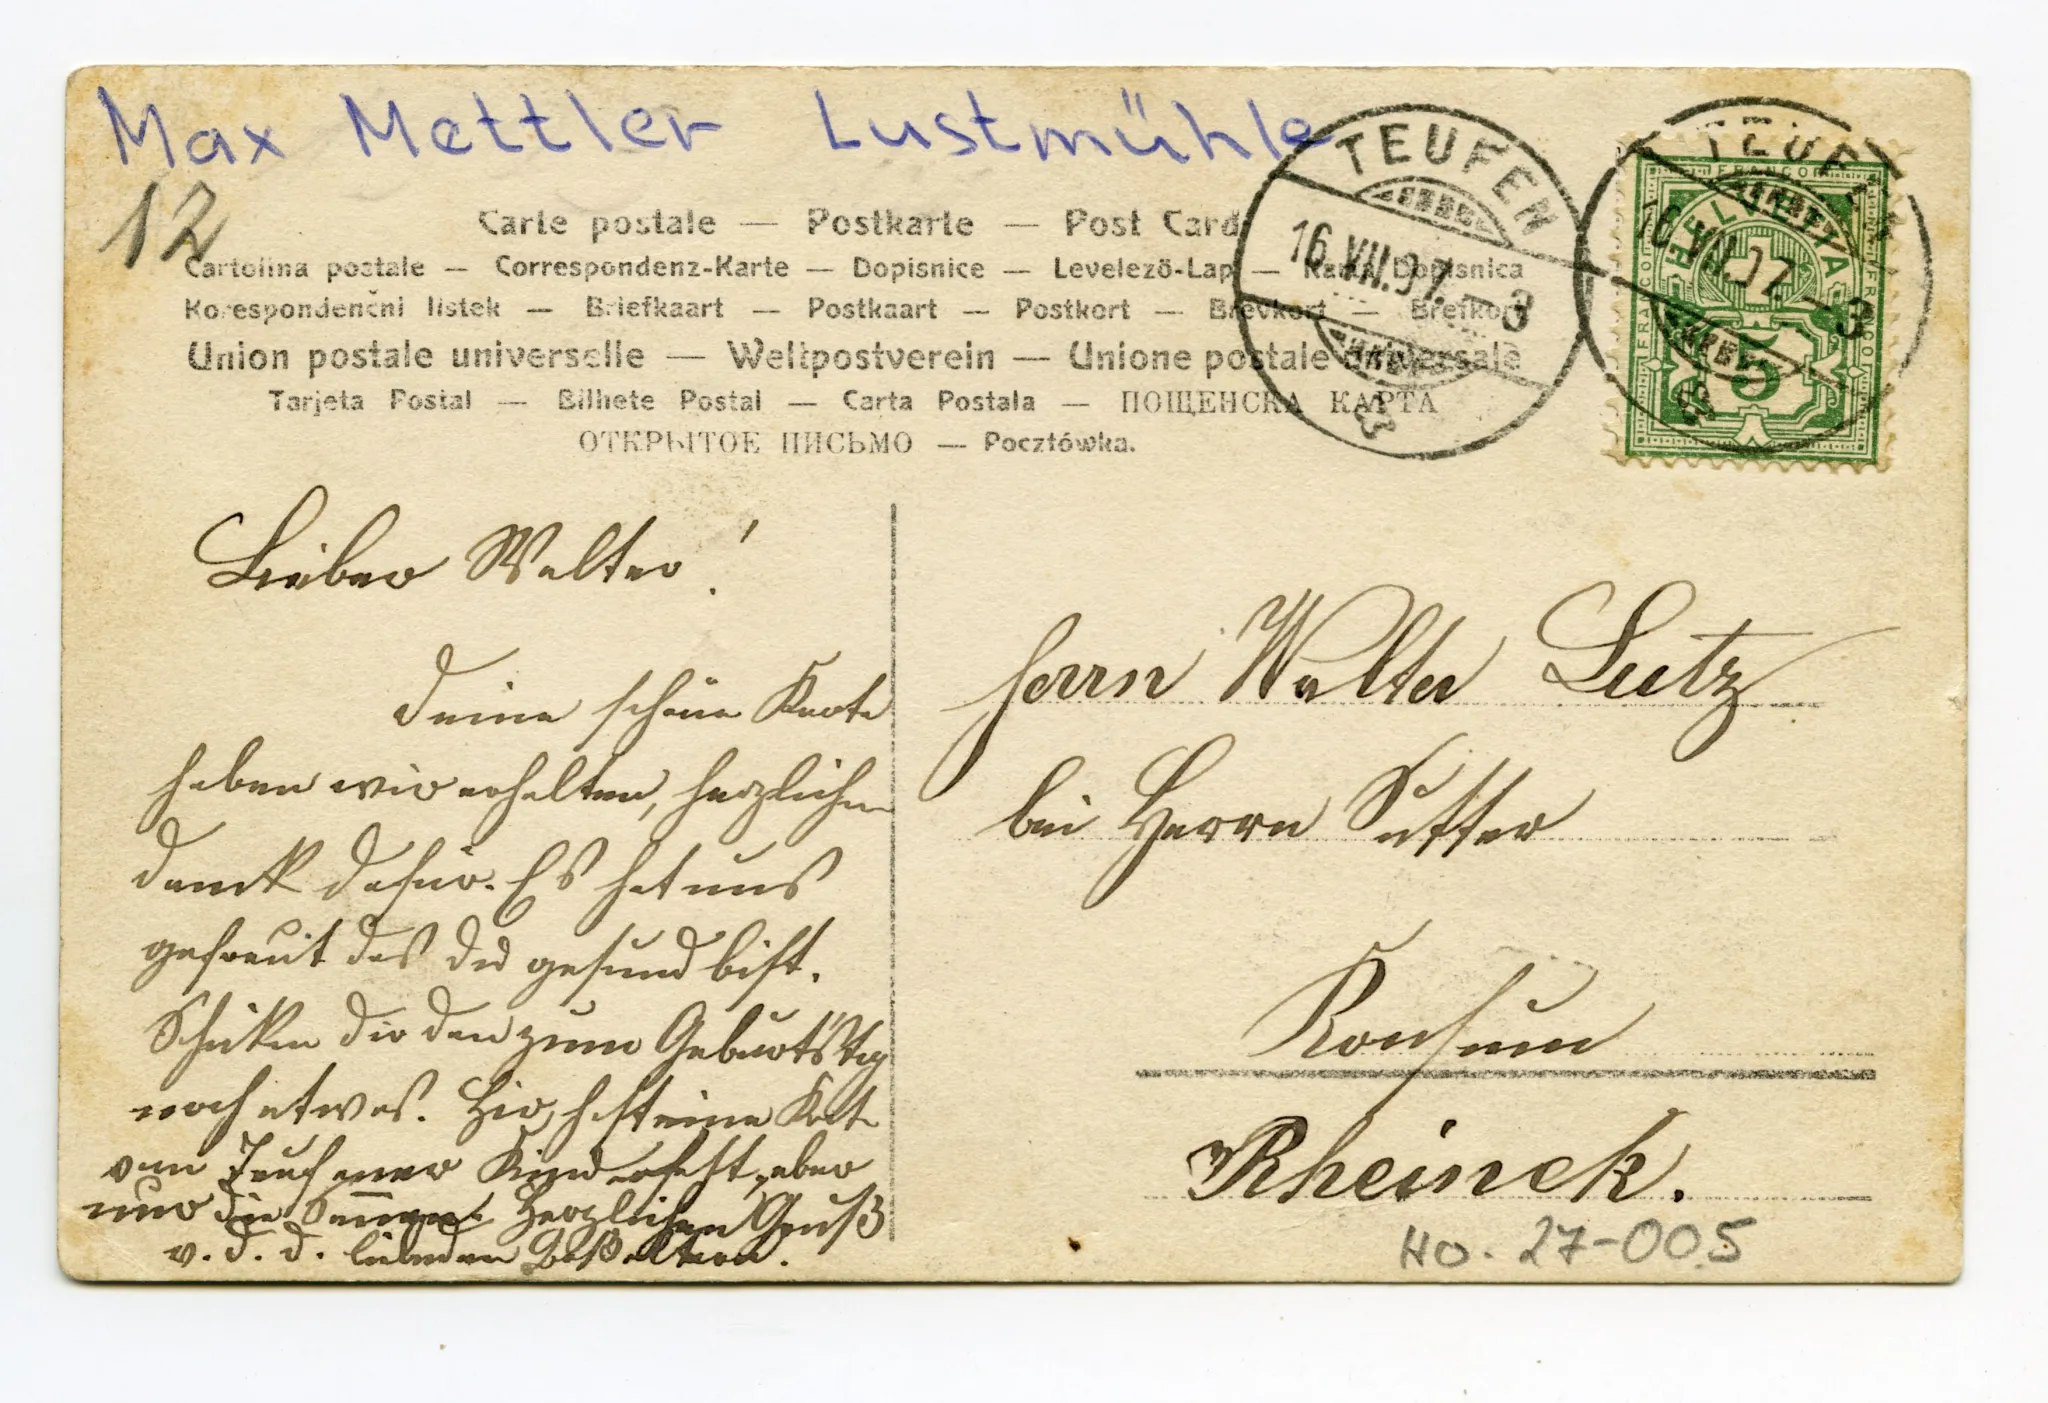 Max Mettler Lustmühle
12
Carte postale — Postkarte — Post Card
Cartolina postale — Correspondenz-Karte — Dopisnice — Levelező-Lap — Karta Dopisnica
Korespondenční listek — Briefkaart — Postkaart — Postkort — Brevkort — Brefkort
Union postale universelle — Weltpostverein — Unione postale universale
Tarjeta Postal — Bilhete Postal — Carta Postala — ПОЩЕНСКА КАРТА
ОТКРЫТОЕ ПИСЬМО — Pocztówka.
TEUFEN
16.VII.07.–3
TEUFEN
16.VII.07.–3
FRANCO
HELVETIA
FRANCO
FRANCO
5
Lieber Walter!
Deine schöne Karte
haben wir erhalten, herzlichen
Dank dafür. Es hat uns
gefreut das Du gesund bist.
Schicken dir den zum Geburtstag
noch etwas. Hier hast eine Kart
vom Teufener Kinderfest, aber
nur die Herzlichen Gruß
v. d. d. liebenden Großeltern.
Herrn Walter Lutz
bei Herrn Sutter
Konsum
Rheineck.
HO. 27-005